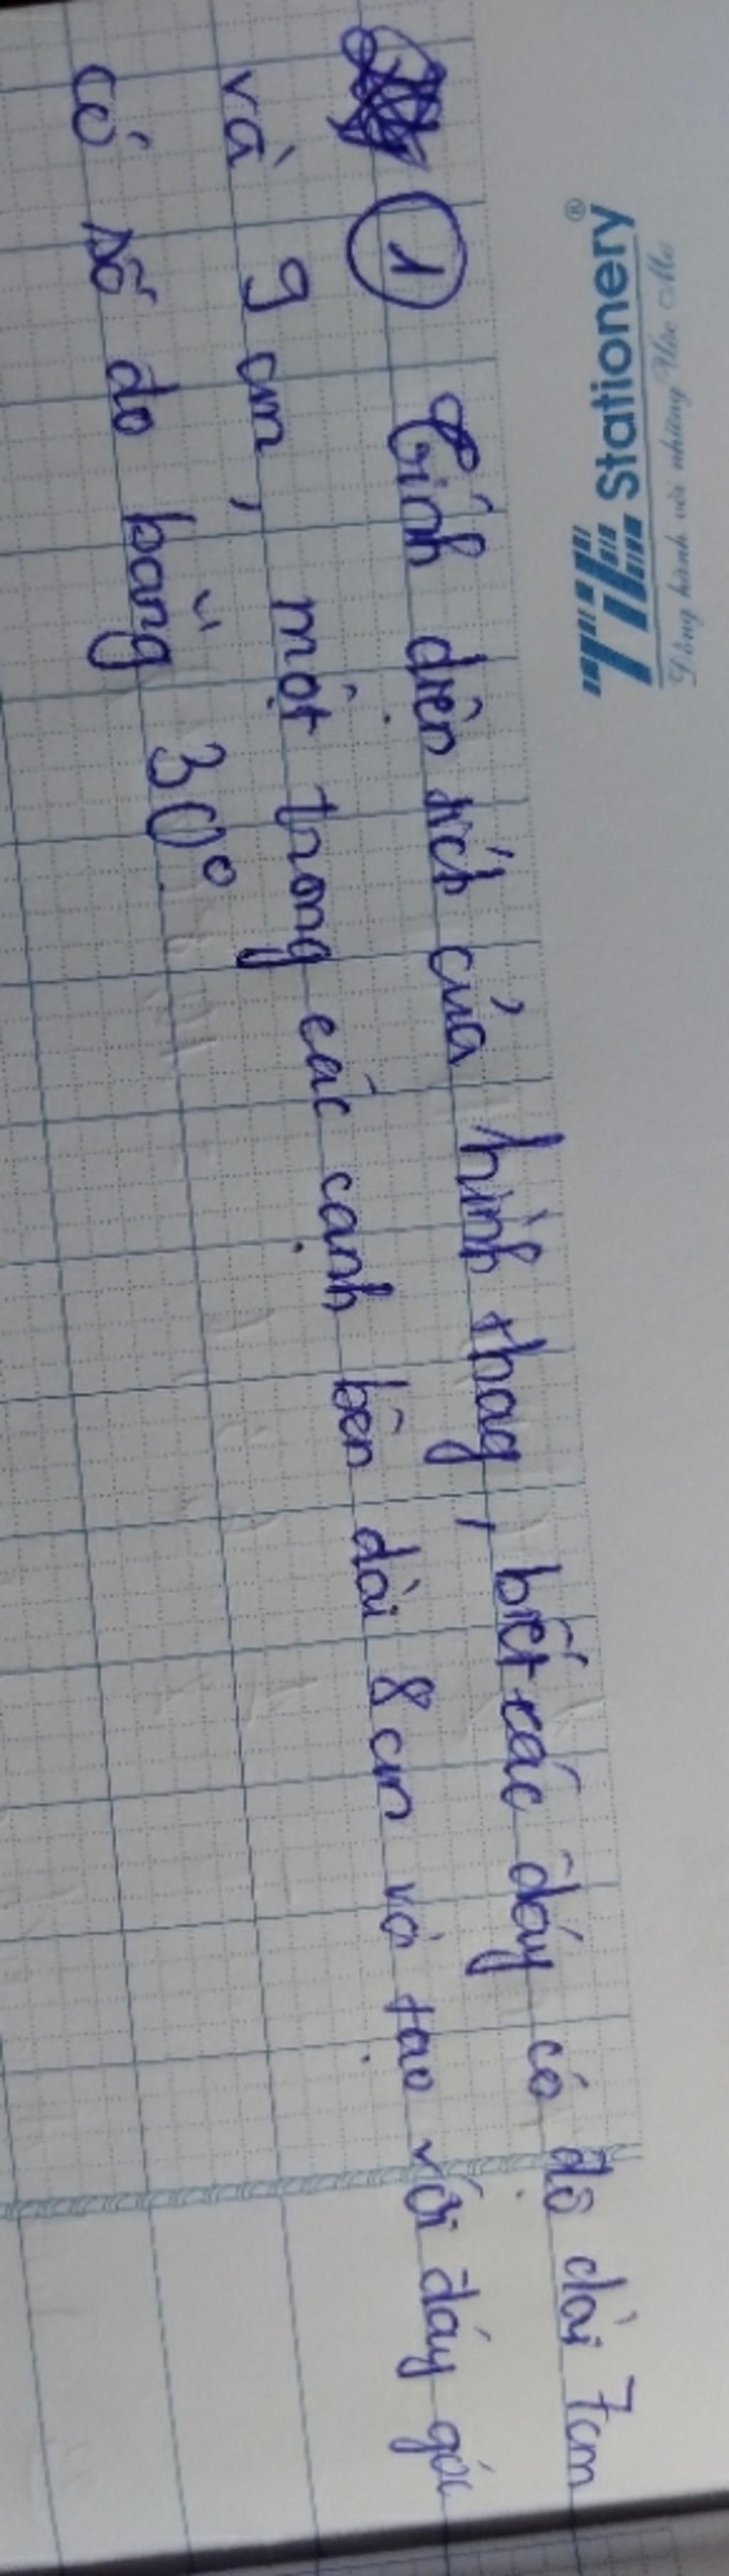 TiE Stationery®
Đồng hành với những Ước Mơ
① Tính diện tích của hình thag, biết các đáy có độ dài 7cm
và 9 cm, một trong các cạnh bên dài 8cm và tạo với đáy góc
có số đo bằng 30°